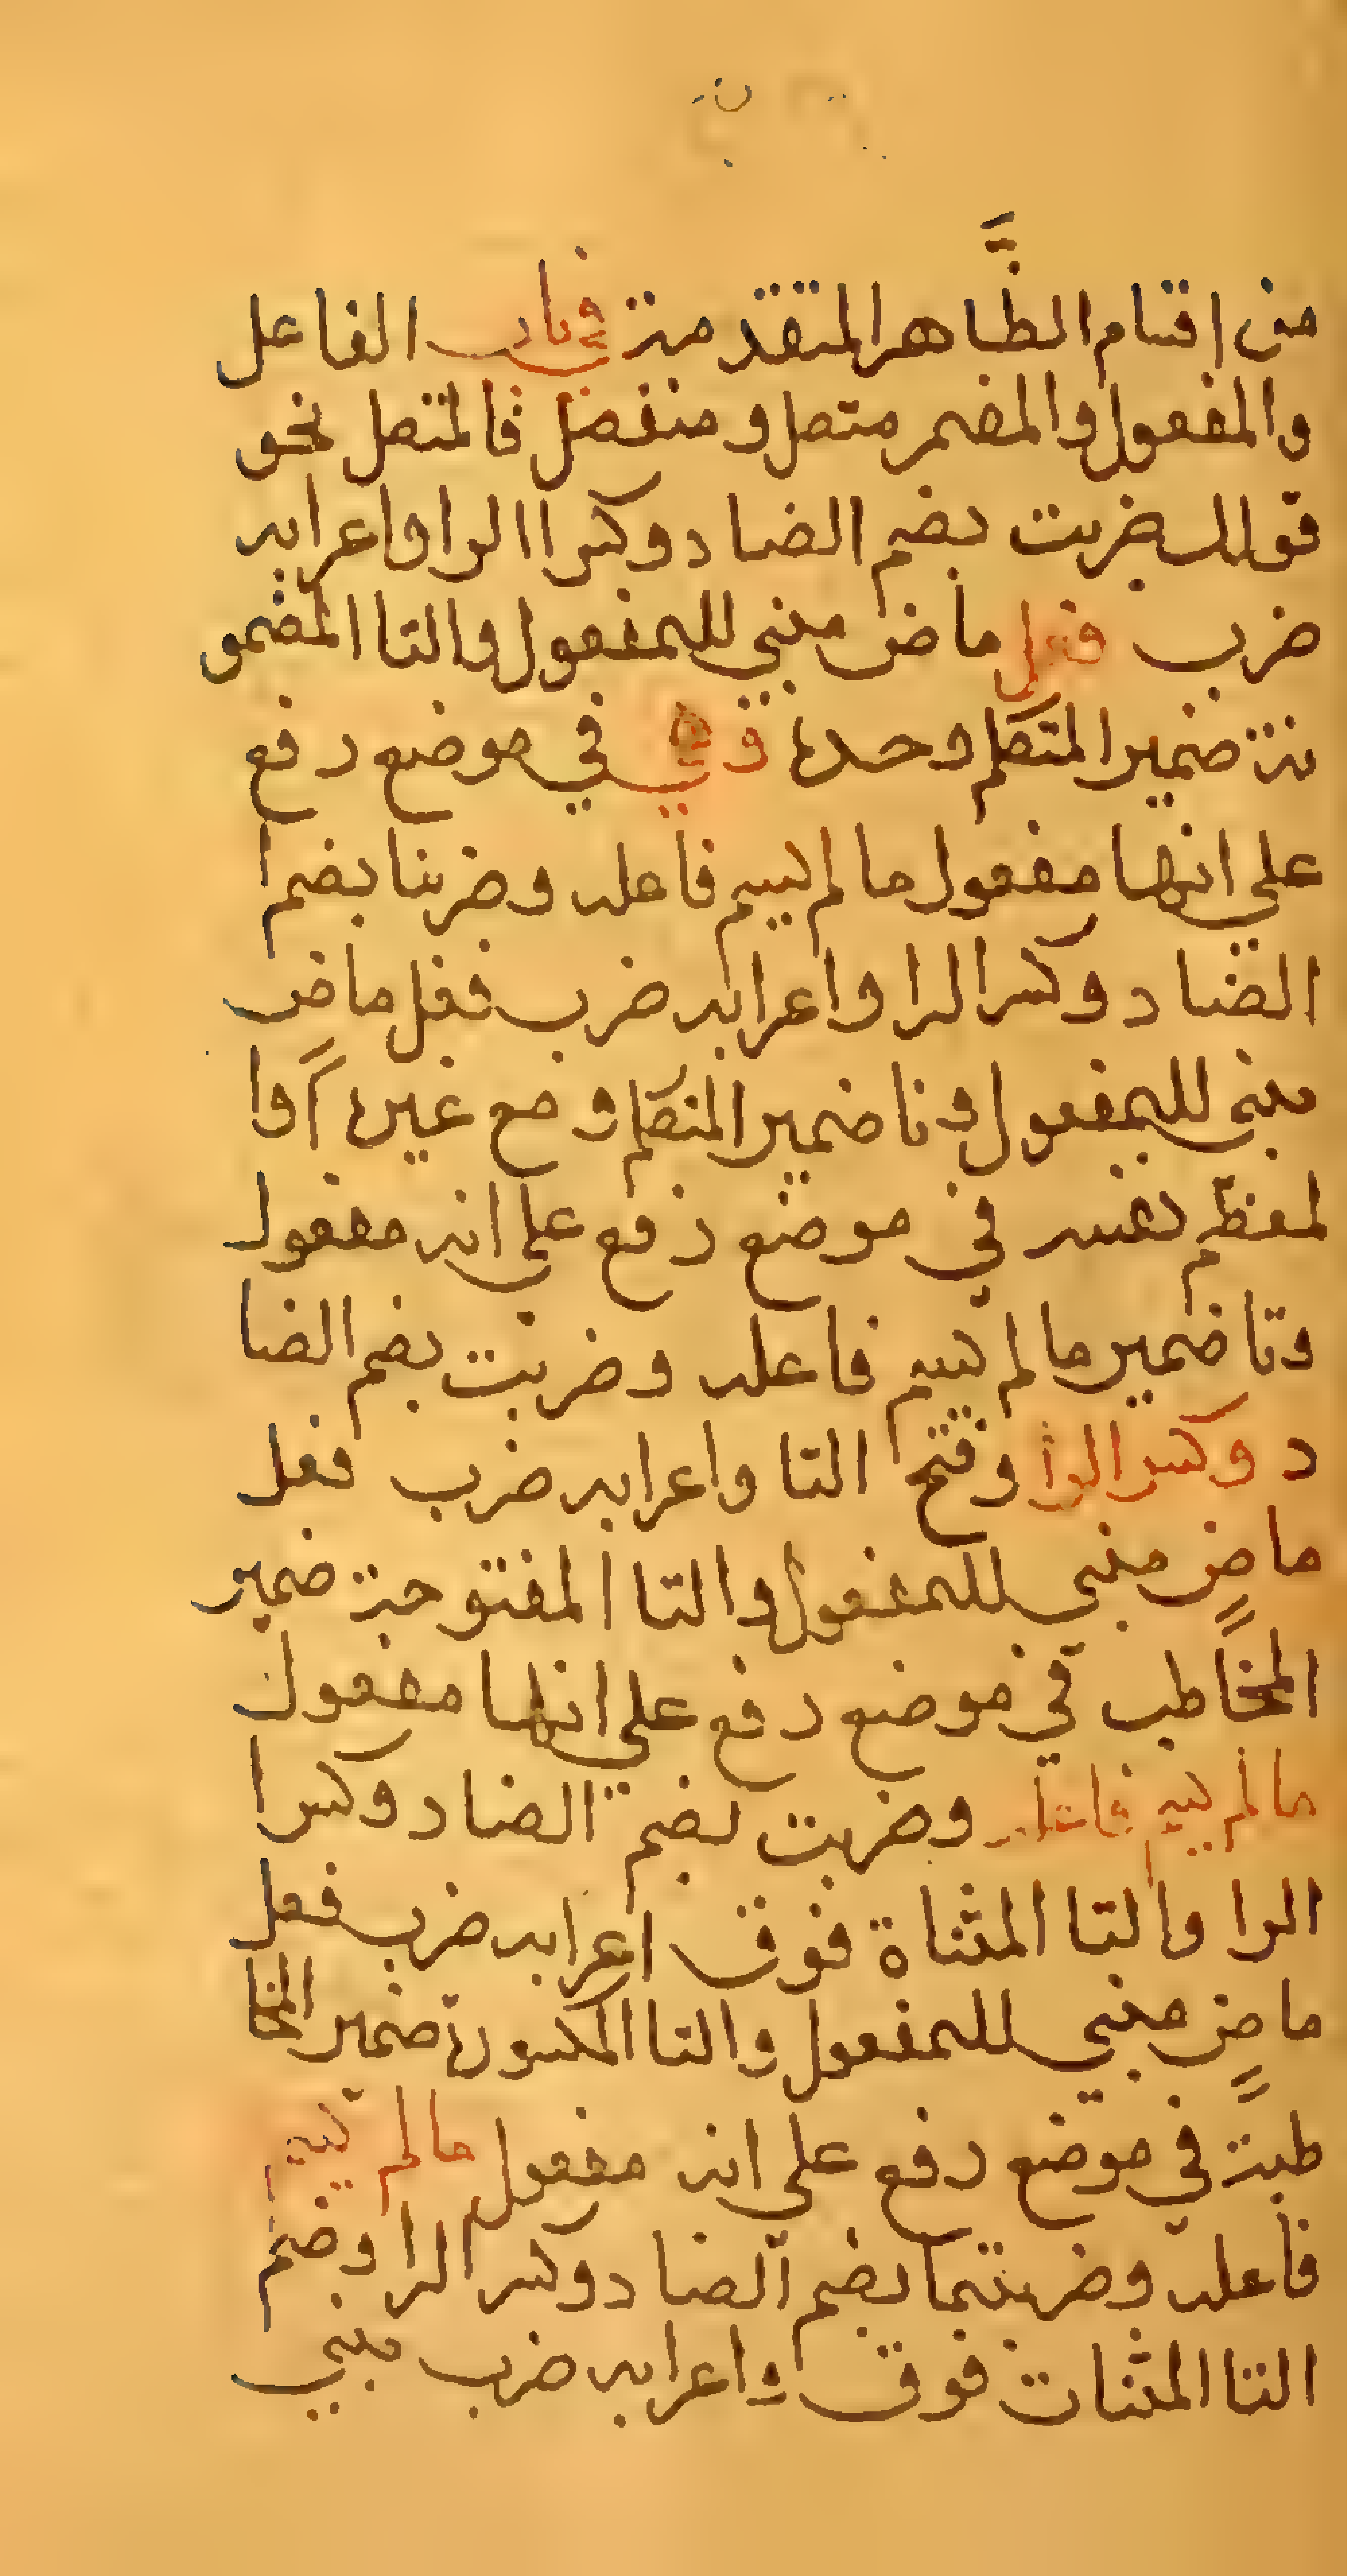 من اقسام الظاهر المتقدمة في باب الفاعل
والمفعول والمضمر متصل ومنفصل فالمتصل نحو
قولك ضربت بضم الضاد وكسر االرا واعرابه
ضرب فعل ماض مبني للمفعول والتا المضمو
مة ضمير المتكلم وحده وفي في موضع رفع
على انها مفعول ما لم يسم فاعله وضربنا بضم
الضاد وكسر الرا واعرابه ضرب فعل ماض
مبني للمفعول ونا ضمير المتكلم ومع غيره اوا
لمعظم نفسه في موضع رفع على انه مفعول
وتا ضمير ما لم يسم فاعله وضربت بضم الضا
د وكسر الرا وفتح التا واعرابه ضرب فعل
ماض مبني للمفعول والتا المفتوحة ضمير
المخاطب في موضع رفع على انها مفعول
ما لم يسم فاعله وضربت بضم الضاد وكسر ا
الرا والتا المثناة فوق اعرابه ضرب فعل
ماض مبني للمفعول والتا المكسورة ضمير المخا
طبة في موضع رفع على انه مفعول ما لم يسم
فاعله وضربتما بضم الضاد وكسر الرا وضم
التا المثنات فوق واعرابه ضرب مبني